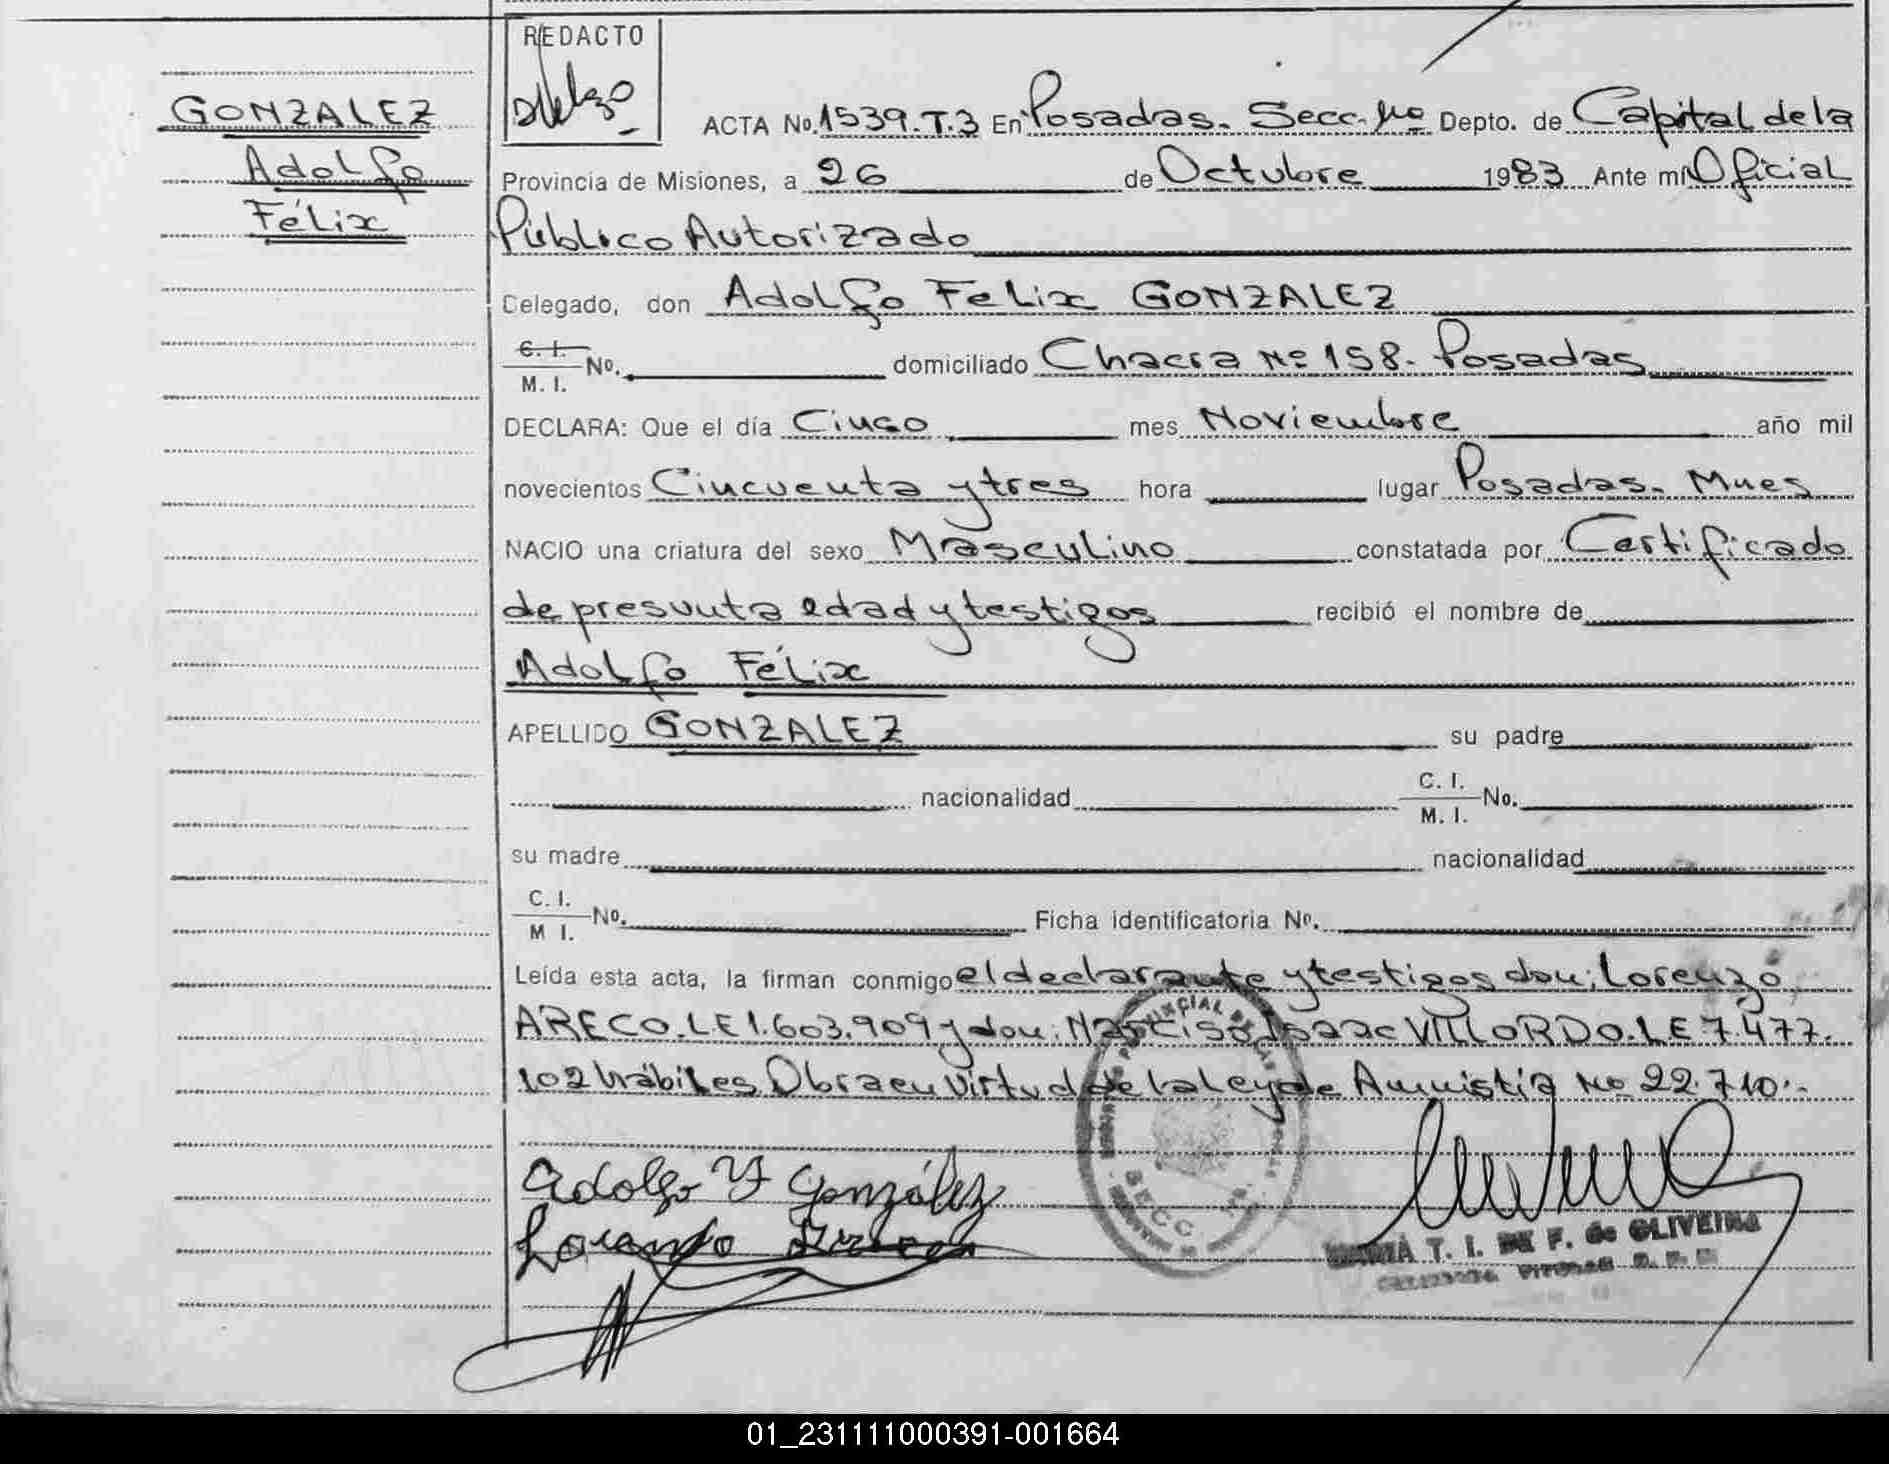 REDACTO
GONZALEZ
Adolfo
Félix
ACTA No. 1539.T.3 En Posadas. Secc. Depto. de Capital de la
Provincia de Misiones, a 26 de Octubre 1983 Ante mí Oficial
Público Autorizado
Delegado, don Adolfo Felix GONZALEZ
C. I.
M. I. No. domiciliado Chacra Nº 158. Posadas
DECLARA: Que el día Cinco mes Noviembre año mil
novecientos Cincuenta y tres hora lugar Posadas. Mnes
NACIO una criatura del sexo Masculino constatada por Certificado
de presunta edad y testigos recibió el nombre de
Adolfo Félix
APELLIDO GONZALEZ su padre
nacionalidad C. I. M. I. No.
su madre nacionalidad
C. I. M I. No. Ficha identificatoria No.
Leída esta acta, la firman conmigo el declarante y testigos don: Lorenzo
ARECO. L E 1.603.909 y don: Narciso Isaac VILLORDO. L E 7.477.
102 hábiles. Obra en virtud de la Ley de Amnistia No 22.710.-
Adolfo F González
Lorenzo Areco
MARIA T. I. DE F. de OLIVEIRA
01_231111000391-001664